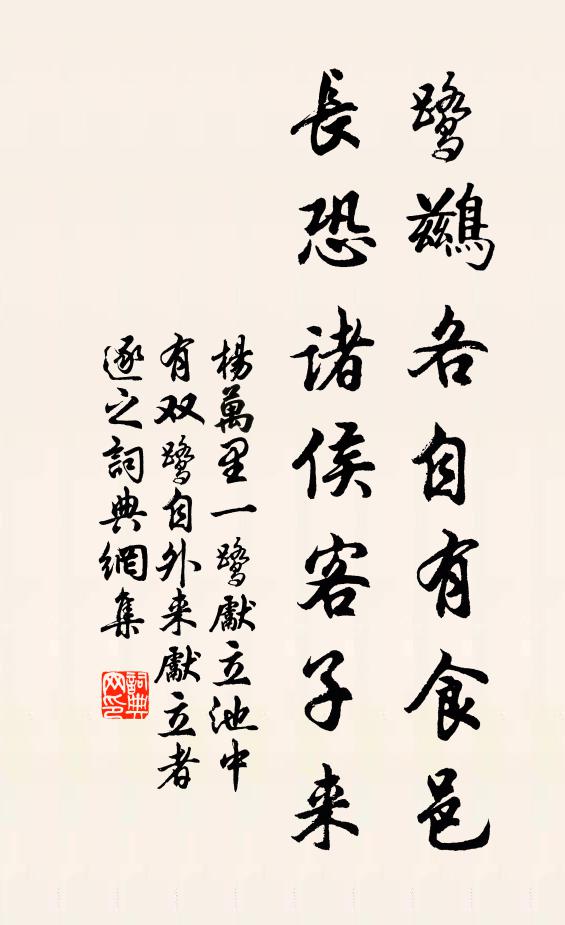 鹭鷀各自有食邑
長恐诸侯客子来
楊萬里一鹭獻立池中
有双鹭自外来獻立者
逐之詞典網集
詞典网印